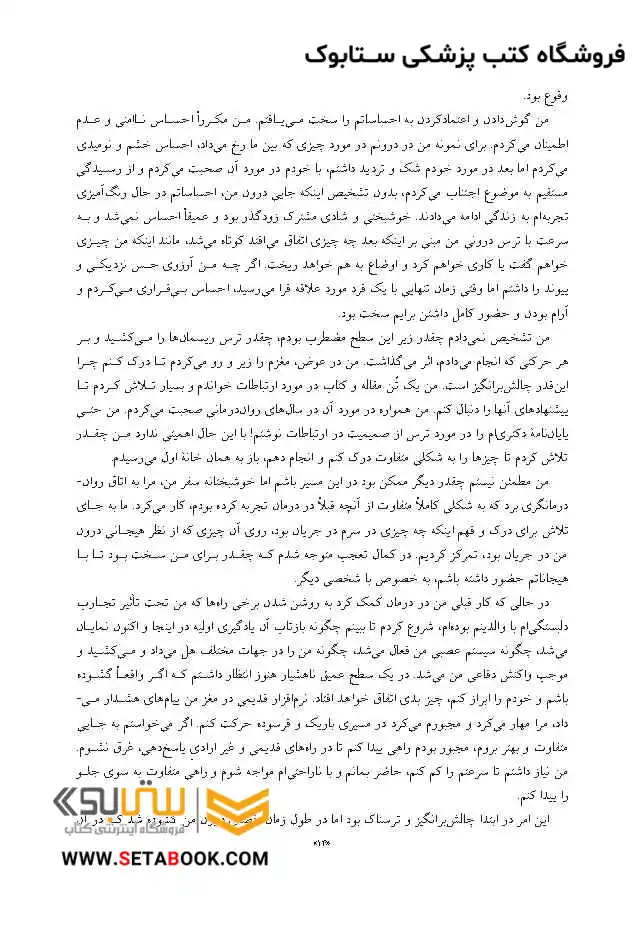 فروشگاه کتب پزشکی ستابوک
وقوع بود.
من گوش‌دادن و اعتمادکردن به احساساتم را سخت می‌یافتم. من مکرراً احساس ناامنی و عدم
اطمینان می‌کردم. برای نمونه من در درونم در مورد چیزی که بین ما رخ می‌داد، احساس خشم و نومیدی
می‌کردم اما بعد در مورد خودم شک و تردید داشتم، با خودم در مورد آن صحبت می‌کردم و از رسیدگی
مستقیم به موضوع اجتناب می‌کردم، بدون تشخیص اینکه جایی درون من، احساساتم در حال رنگ‌آمیزی
تجربه‌ام به زندگی ادامه می‌دادند. خوشبختی و شادی مشترک زودگذر بود و عمیقاً احساس نمی‌شد و به
سرعت با ترس درونی من مبنی بر اینکه بعد چه چیزی اتفاق می‌افتد کوتاه می‌شد، مانند اینکه من چیزی
خواهم گفت یا کاری خواهم کرد و اوضاع به هم خواهد ریخت. اگر چه من آرزوی حس نزدیکی و
پیوند را داشتم اما وقتی زمان تنهایی با یک فرد مورد علاقه فرا می‌رسید، احساس بی‌قراری می‌کردم و
آرام بودن و حضور کامل داشتن برایم سخت بود.
من تشخیص نمی‌دادم چقدر زیر این سطح مضطرب بودم، چقدر ترس ریسمان‌ها را می‌کشید و بر
هر حرکتی که انجام می‌دادم، اثر می‌گذاشت. من در عوض، مغزم را زیر و رو می‌کردم تا درک کنم چرا
این‌قدر چالش‌برانگیز است. من یک تُن مقاله و کتاب در مورد ارتباطات خواندم و بسیار تلاش کردم تا
پیشنهادهای آنها را دنبال کنم. من همواره در مورد آن در سال‌های روان‌درمانی صحبت می‌کردم. من حتی
پایان‌نامهٔ دکتری‌ام را در مورد ترس از صمیمیت در ارتباطات نوشتم! با این حال اهمیتی ندارد من چقدر
تلاش کردم تا چیزها را به شکلی متفاوت درک کنم و انجام دهم، باز به همان خانهٔ اول می‌رسیدم.
من مطمئن نیستم چقدر دیگر ممکن بود در این مسیر باشم اما خوشبختانه سفر من، مرا به اتاق روان-
درمانگری برد که به شکلی کاملاً متفاوت از آنچه قبلاً در درمان تجربه کرده بودم، کار می‌کرد. ما به جای
تلاش برای درک و فهم اینکه چه چیزی در سرم در جریان بود، روی آن چیزی که از نظر هیجانی درون
من در جریان بود، تمرکز کردیم. در کمال تعجب متوجه شدم که چقدر برای من سخت بود تا با
هیجاناتم حضور داشته باشم، به خصوص با شخصی دیگر.
در حالی که کار قبلی من در درمان کمک کرد به روشن شدن برخی راه‌ها که من تحت تأثیر تجارب
دلبستگی‌ام با والدینم بوده‌ام، شروع کردم تا ببینم چگونه بازتاب آن یادگیری اولیه در اینجا و اکنون نمایان
می‌شد، چگونه سیستم عصبی من فعال می‌شد، چگونه من را در جهات مختلف هل می‌داد و می‌کشید و
موجب واکنش دفاعی من می‌شد. در یک سطح عمیق ناهشیار هنوز انتظار داشتم که اگر واقعاً گشوده
باشم و خودم را ابراز کنم، چیز بدی اتفاق خواهد افتاد. نرم‌افزار قدیمی در مغز من پیام‌های هشدار می-
داد، مرا مهار می‌کرد و مجبورم می‌کرد در مسیری باریک و فرسوده حرکت کنم. اگر می‌خواستم به جایی
متفاوت و بهتر بروم، مجبور بودم راهی پیدا کنم تا در راه‌های قدیمی و غیر ارادیِ پاسخ‌دهی، غرق نشوم.
من نیاز داشتم تا سرعتم را کم کنم، حاضر بمانم و با ناراحتی‌ام مواجه شوم و راهی متفاوت به سوی جلو
را پیدا کنم.
این امر در ابتدا چالش‌برانگیز و ترسناک بود اما در طول زمان من گشوده شد که در آن
ستابوک
فروشگاه اینترنتی کتاب
«۱۴»
WWW.SETABOOK.COM